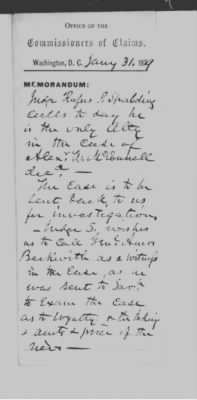 OFFICE OF THE
Commissioners of Claims.
Washington, D. C. Jany 31. 1879
MEMORANDUM:
Judge Rufus P. Spalding
calls to day he
is the only Atty
in the Case of
Alexr. W. McConnell
decd. —
The Case is to be
sent back to us
for investigation
— Judge S. wishes
us to Call Genl. Amos
Beckwith as a witness
in the Case, as he
was sent to Savh.
to Exam the Case
as to loyalty & the taking
& amts & price of the